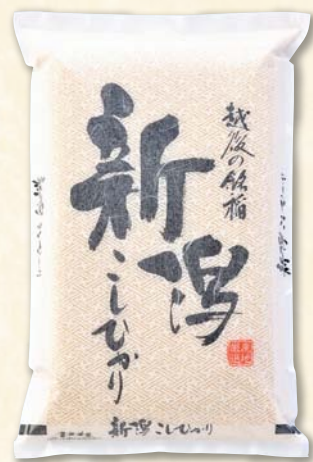 越後の銘稲
新潟
こしひかり
産地
厳選
新潟こしひかり